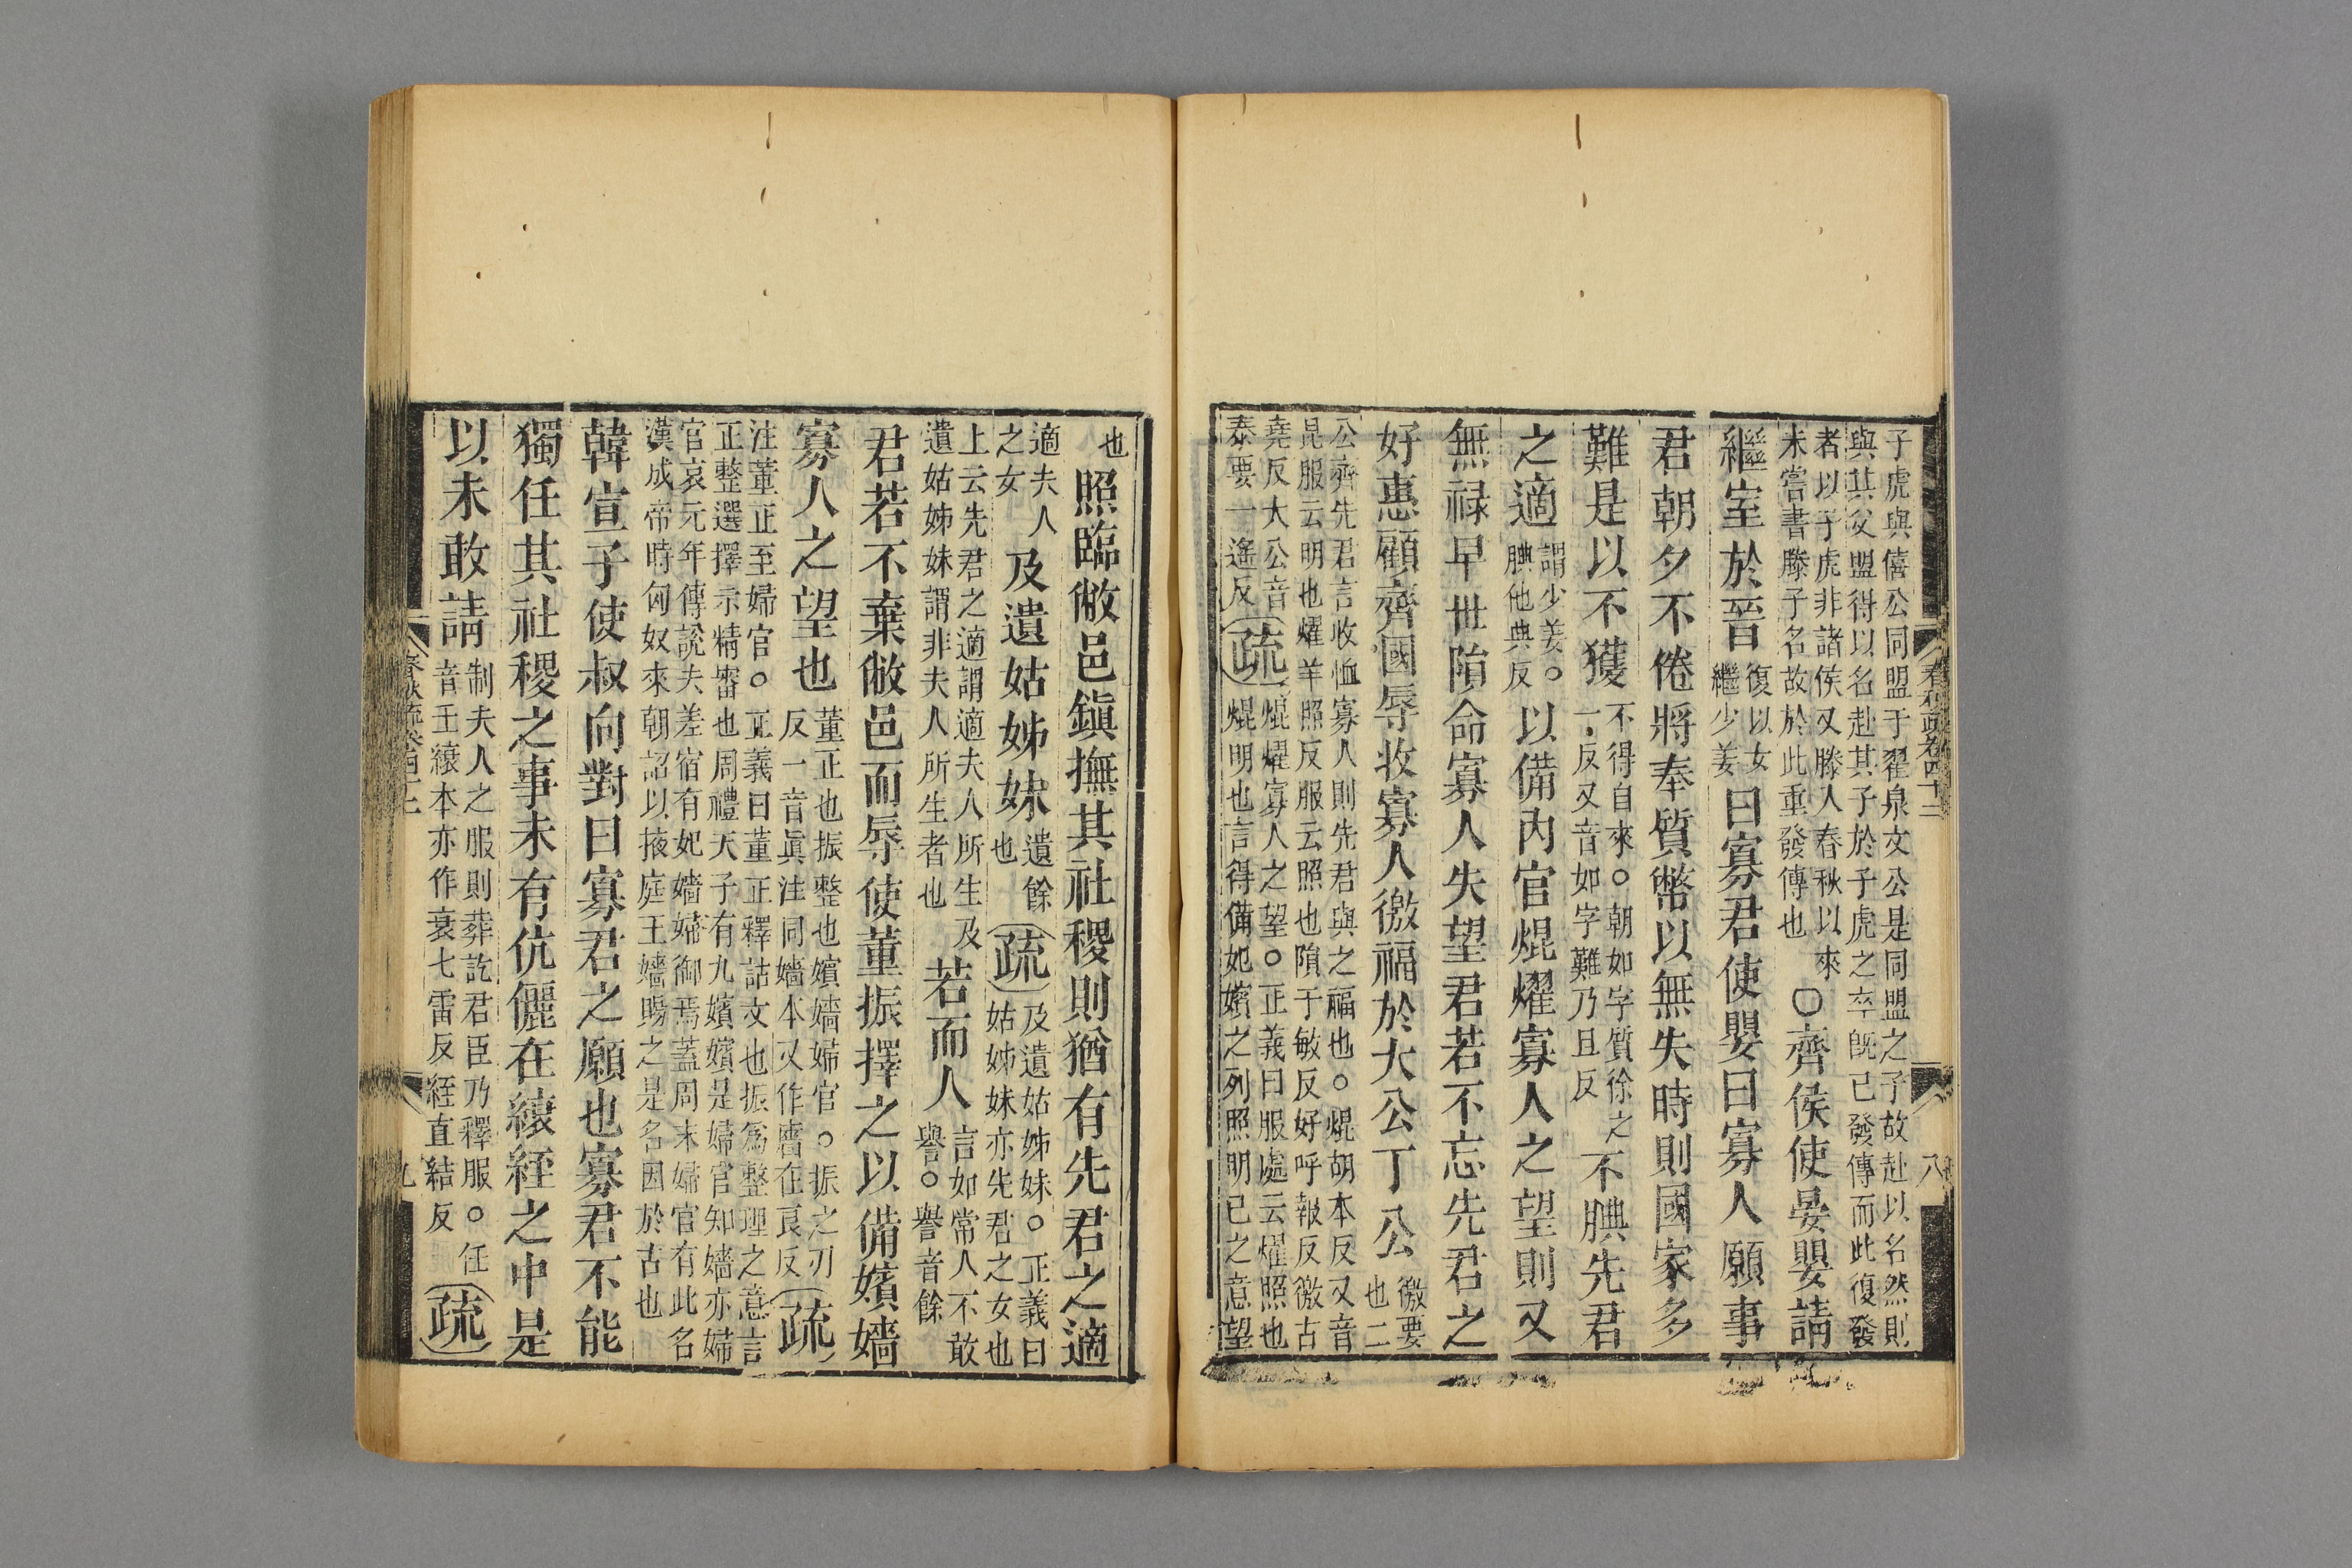 子虎與僖公同盟于翟泉文公是同盟之子故赴以名然則
與其父盟得以名赴其子於子虎之卒旣已發傳而此復發
者以子虎非諸侯又滕人春秋以來
未嘗書滕子名故於此重發傳也
○齊侯使晏嬰請
繼室於晉
復以女
繼少姜
曰寡君使嬰曰寡人願事
君朝夕不倦將奉質幣以無失時則國家多
難是以不獲
不得自來○朝如字質徐之
二反又音如字難乃且反
不腆先君
之適
謂少姜○
腆他典反
以備內官焜燿寡人之望則又
無祿早世隕命寡人失望君若不忘先君之
好惠顧齊國辱收寡人徼福於大公丁公
徼要
也二
公齊先君言收恤寡人則先君與之福也○焜胡本反又音
昆服云明也燿羊照反服云照也隕于敏反好呼報反徼古
堯反大公音
泰要一遙反
疏
焜燿寡人之望○正義曰服虔云燿照也
焜明也言得備妃嬪之列照明已之意望
春秋疏卷四十二
八
也
照臨敝邑鎮撫其社稷則猶有先君之適
適夫人
之女
及遺姑姊妹
遺餘
也
疏
及遺姑姊妹○正義曰
姑姊妹亦先君之女也
上云先君之適謂適夫人所生及
遺姑姊妹謂非夫人所生者也
若而人
言如常人不敢
譽○譽音餘
君若不棄敝邑而辱使董振擇之以備嬪嬙
寡人之望也
董正也振整也嬪嬙婦官○振之刃
反一音眞注同嬙本又作廧在良反
疏
注董正至婦官○正義曰董正釋詁文也振為整理之意言
正整選擇示精審也周禮天子有九嬪嬪是婦官知嬙亦婦
官哀元年傳說夫差宿有妃嬙嬪御焉蓋周末婦官有此名
漢成帝時匈奴來朝詔以掖庭王嬙賜之是名因於古也
韓宣子使叔向對曰寡君之願也寡君不能
獨任其社稷之事未有伉儷在縗絰之中是
以未敢請
制夫人之服則葬訖君臣乃釋服○任
音壬縗本亦作衰七雷反絰直結反
疏
九